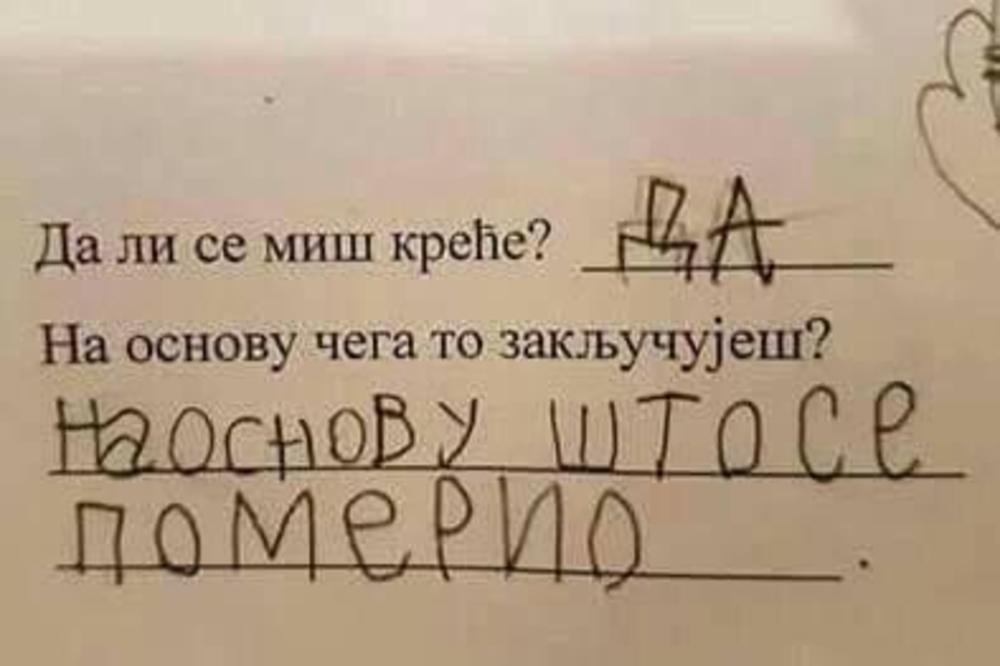 Да ли се миш креће? ДА
На основу чега то закључујеш?
На основу што се
померио.